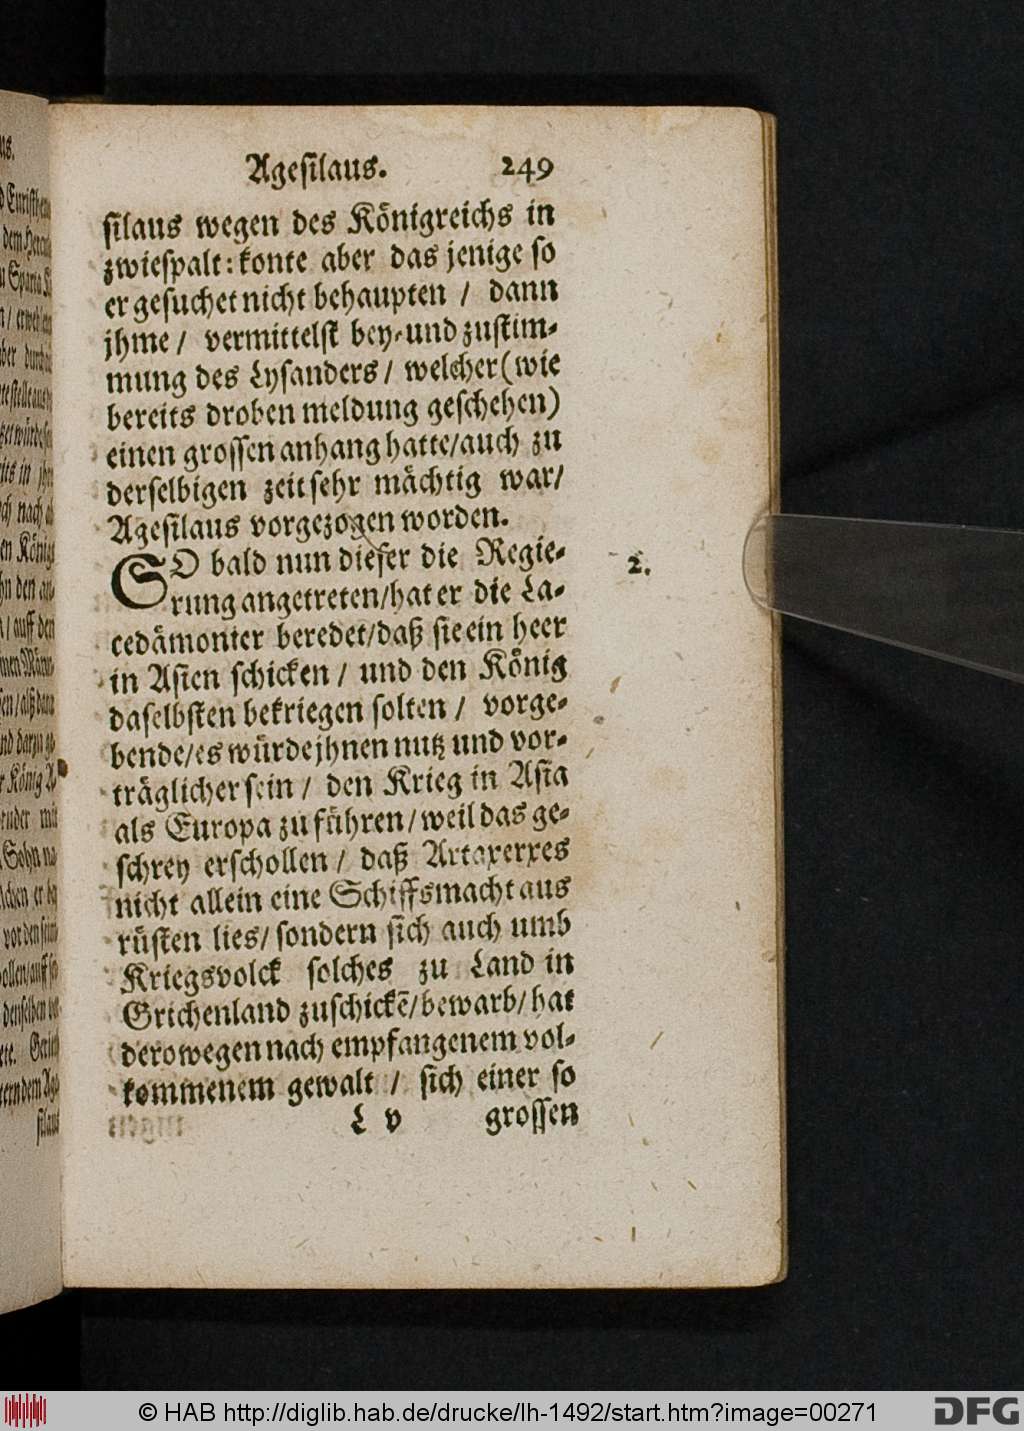 Agesilaus. 249
silaus wegen des Königreichs in
zwiespalt: konte aber das jenige so
er gesuchet nicht behaupten / dann
jhme / vermittelst bey-und zustim-
mung des Lysanders / welcher (wie
bereits droben meldung geschehen)
einen grossen anhang hatte/auch zu
derselbigen zeit sehr mächtig war/
Agesilaus vorgezogen worden.
SO bald nun dieser die Regie- 2.
rung angetreten/hat er die La-
cedämonier beredet/daß sie ein heer
in Asien schicken / und den König
daselbsten bekriegen solten / vorge-
bende/es würde jhnen nutz und vor-
träglicher sein / den Krieg in Asia
als Europa zu führen/weil das ge-
schrey erschollen / daß Artaxerxes
nicht allein eine Schiffsmacht aus
rüsten lies/ sondern sich auch umb
Kriegsvolck solches zu Land in
Grichenland zuschickē/bewarb/hat
derowegen nach empfangenem vol-
kommenem gewalt / sich einer so
L v grossen
© HAB http://diglib.hab.de/drucke/lh-1492/start.htm?image=00271
DFG